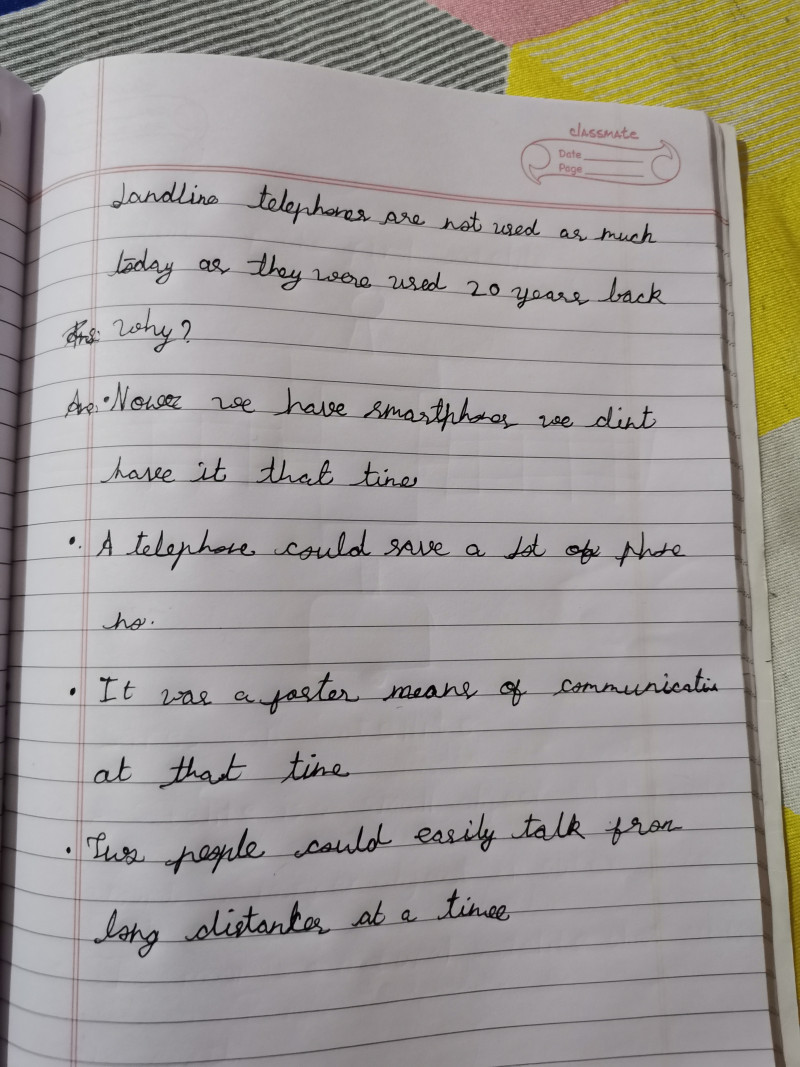 classmate
Date
Page
Landline telephones are not used as much
today as they were used 20 years back
Ans: why?
Ans: • Now we have smartphones we dint
have it that time
• A telephone could save a lot of phone
no.
• It was a faster means of communication
at that time
• Two people could easily talk from
long distances at a time